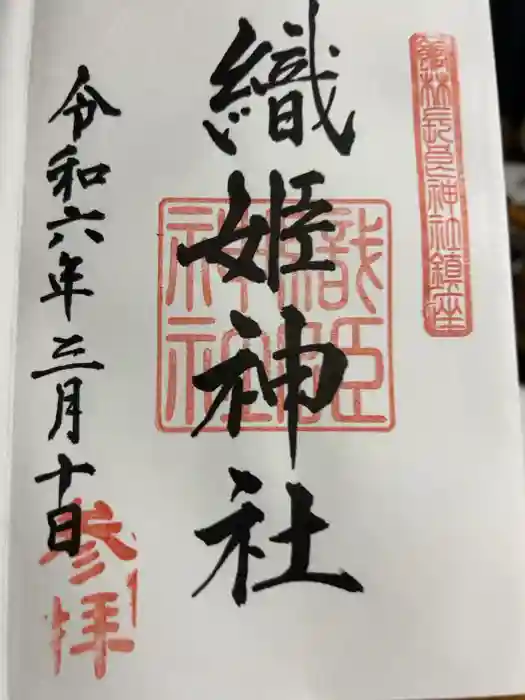 舘林長良神社鎮座
織姫神社
織姫神社
令和六年三月十日
参拝